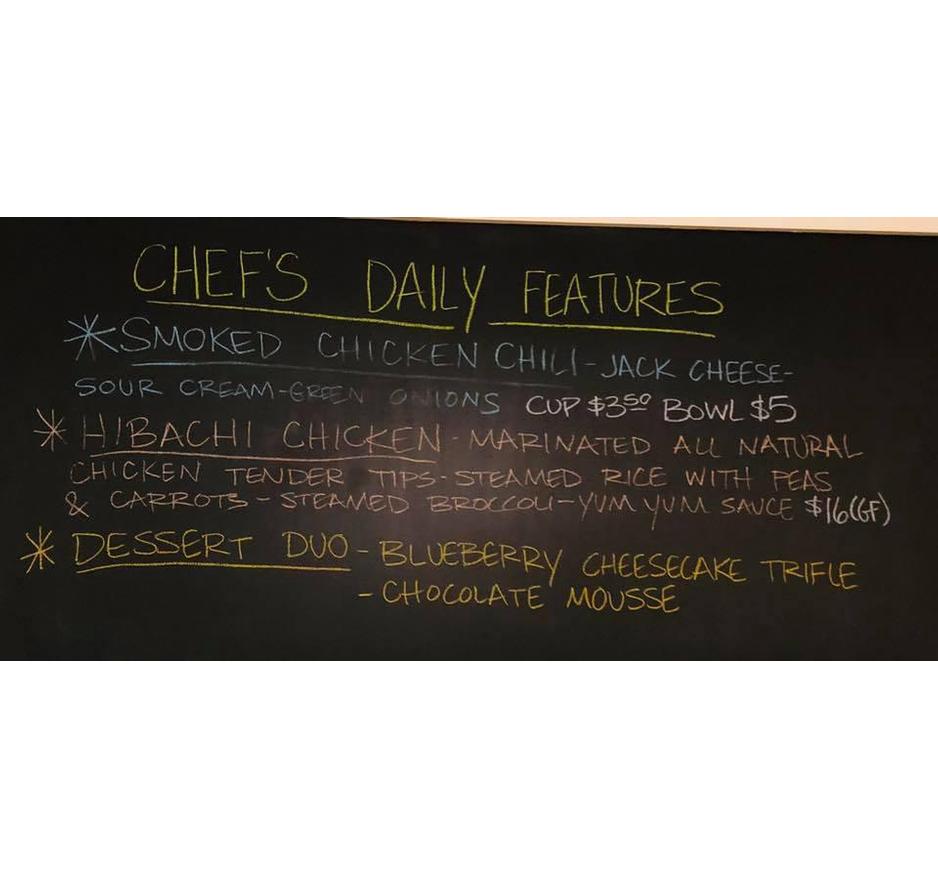 CHEF'S DAILY FEATURES
*SMOKED CHICKEN CHILI-JACK CHEESE-
SOUR CREAM-GREEN ONIONS CUP $3.50 BOWL $5
* HIBACHI CHICKEN - MARINATED ALL NATURAL
CHICKEN TENDER TIPS-STEAMED RICE WITH PEAS
& CARROTS - STEAMED BROCCOLI-YUM YUM SAUCE $16(GF)
* DESSERT DUO - BLUEBERRY CHEESECAKE TRIFLE
- CHOCOLATE MOUSSE